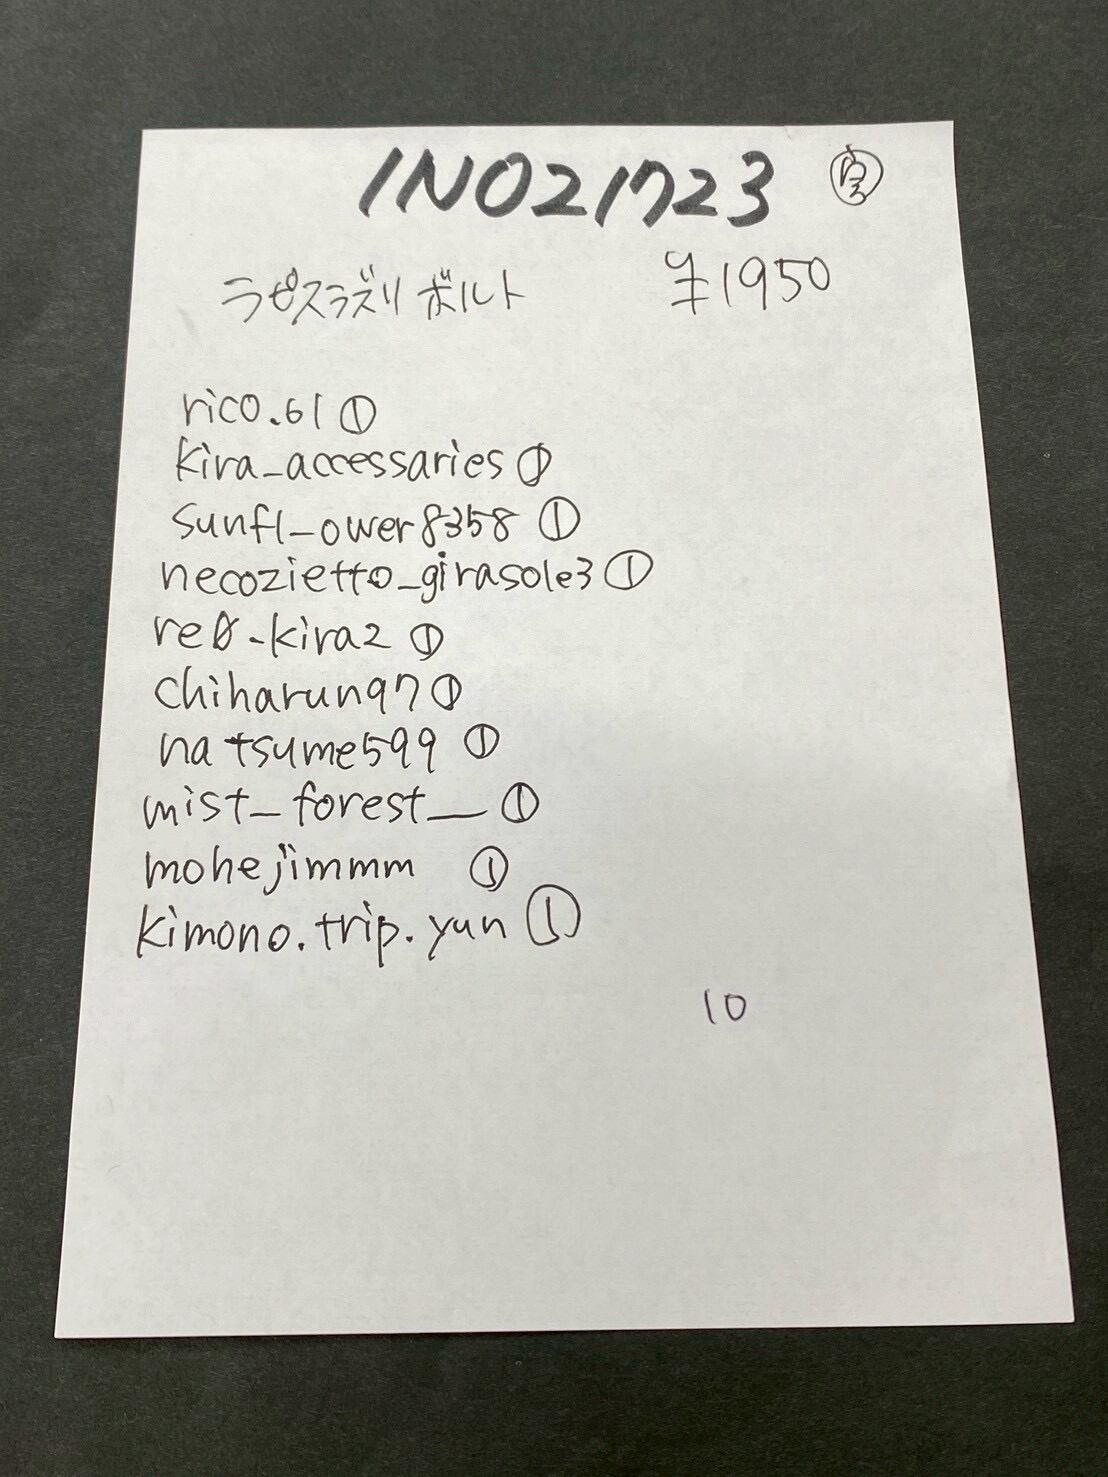 INO21723
ラピスラズリ ボルト ¥1950
rico.61 ①
kira_accessaries ①
sunfl_ower8358 ①
necozietto_girasole3 ①
re0_kira2 ①
chiharun97 ①
natsume599 ①
mist_forest__ ①
mohejimmm ①
kimono.trip.yun ①
10